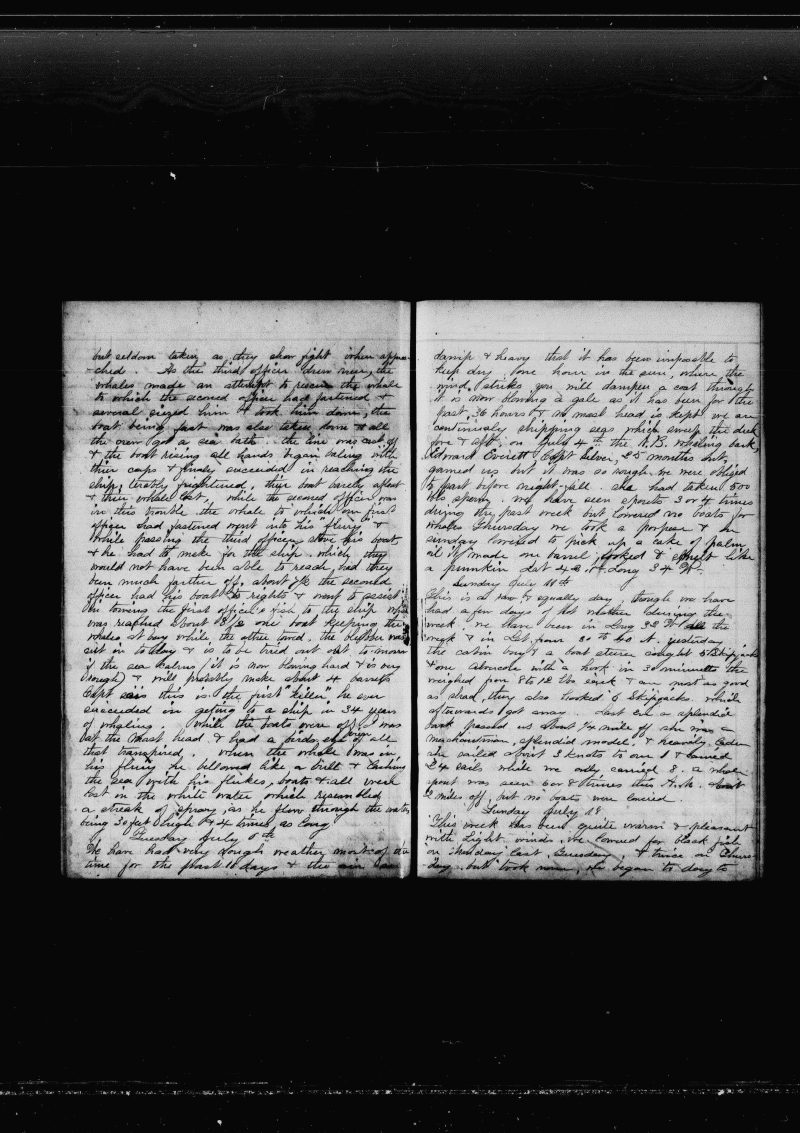 but seldom taken as they show fight when appro-
-ched. As the third officer drew near, the
whales made an attempt to rescue the whale
to which the second officer had fastened &
several siezed him & took him down, the
boat being fast was also taken down & all
the crew got a sea bath. the line was cut off
& the boat rising all hands began baling with
their caps & finaly succeeded in reaching the
ship, terably frightened, their boat barely afloat
& their whale lost, while the second officer was
in this trouble the whale to which our first
officer had fastened went into his "flurry" &
while passing the third officer stove his boat
& he had to make for the ship which they
would not have been able to reach, had they
been much farther off, about 7½ the second
officer had his boat to rights & went to assist
in towing the first officer's fish to the ship which
was reached about 8½ one boat keeping the
whales at bay while the other towed. the blubber was
cut in to day & is to be tried out to morrow
if the sea calms (it is now blowing hard & is very
rough) & will probably make about 4 barrels
Capt says this is the first "killer" he ever
succeeded in getting to a ship in 34 years
of whaling. While the boats were off I was
at the mast head & had a birds eye view of all
that transpired. When the whale was in
his flurry he bellowed like a bull & lashing
the sea with his flukes, boats & all were
lost in the white water which resembled
a streak of spray, as he flew through the water
being 30 feet high & 4 times as long
Tuesday July 6th
We have had very rough weather most of the
time for the past 10 days & the air has
damp & heavy that it has been impossible to
keep dry. One hour in the sun, where the
wind strikes you will dampen a coat through
it is now blowing a gale as it has been for the
past 36 hours & no mast head is kept we are
continualy shipping seas which sweep the deck
fore & aft. on July 4th the N.B. whaling bark,
Edward Everett Capt Silver, 25 months out,
gamed us but it was so rough we were obliged
to part before night-fall. she had taken 500
bls sperm. We have seen spouts 3 or 4 times
during the past week but lowered no boats for
whales Thursday we took a porpose & on
sunday lowered to pick up a cake of palm
oil it made one barrel, looked & smelt like
a punkin Lat 43. N Long 34 W.
Sunday July 11th
This is a raw & squally day, though we have
had a few days of hot weather during the
week. we have been in Long 32 W all the
week & in Lat from 30 to 40 N. yesterday
the cabin boy & a boat steerer caught 5 Skipjacks
& one Abocore with a hook in 30 minuetts they
weighed from 8 to 12 lbs each & are most as good
as shad, they also hooked 6 Skipjacks which
afterwards got away. Last Eve a splendid
bark passed us about ¼ mile off she was a
merchantman, splendid model, & heavily laden
she sailed about 3 knots to our 1 & carried
24 sails while we only carried 8. a whale
spout was seen 6 or 8 times this A.M. about
2 miles off, but no boats were lowered.
Sunday July 18.
This week has been quite warm & pleasant
with light winds. We lowered for black fish
on Monday last, Tuesday, & twice on Thurs-
day but took none, we began to day to